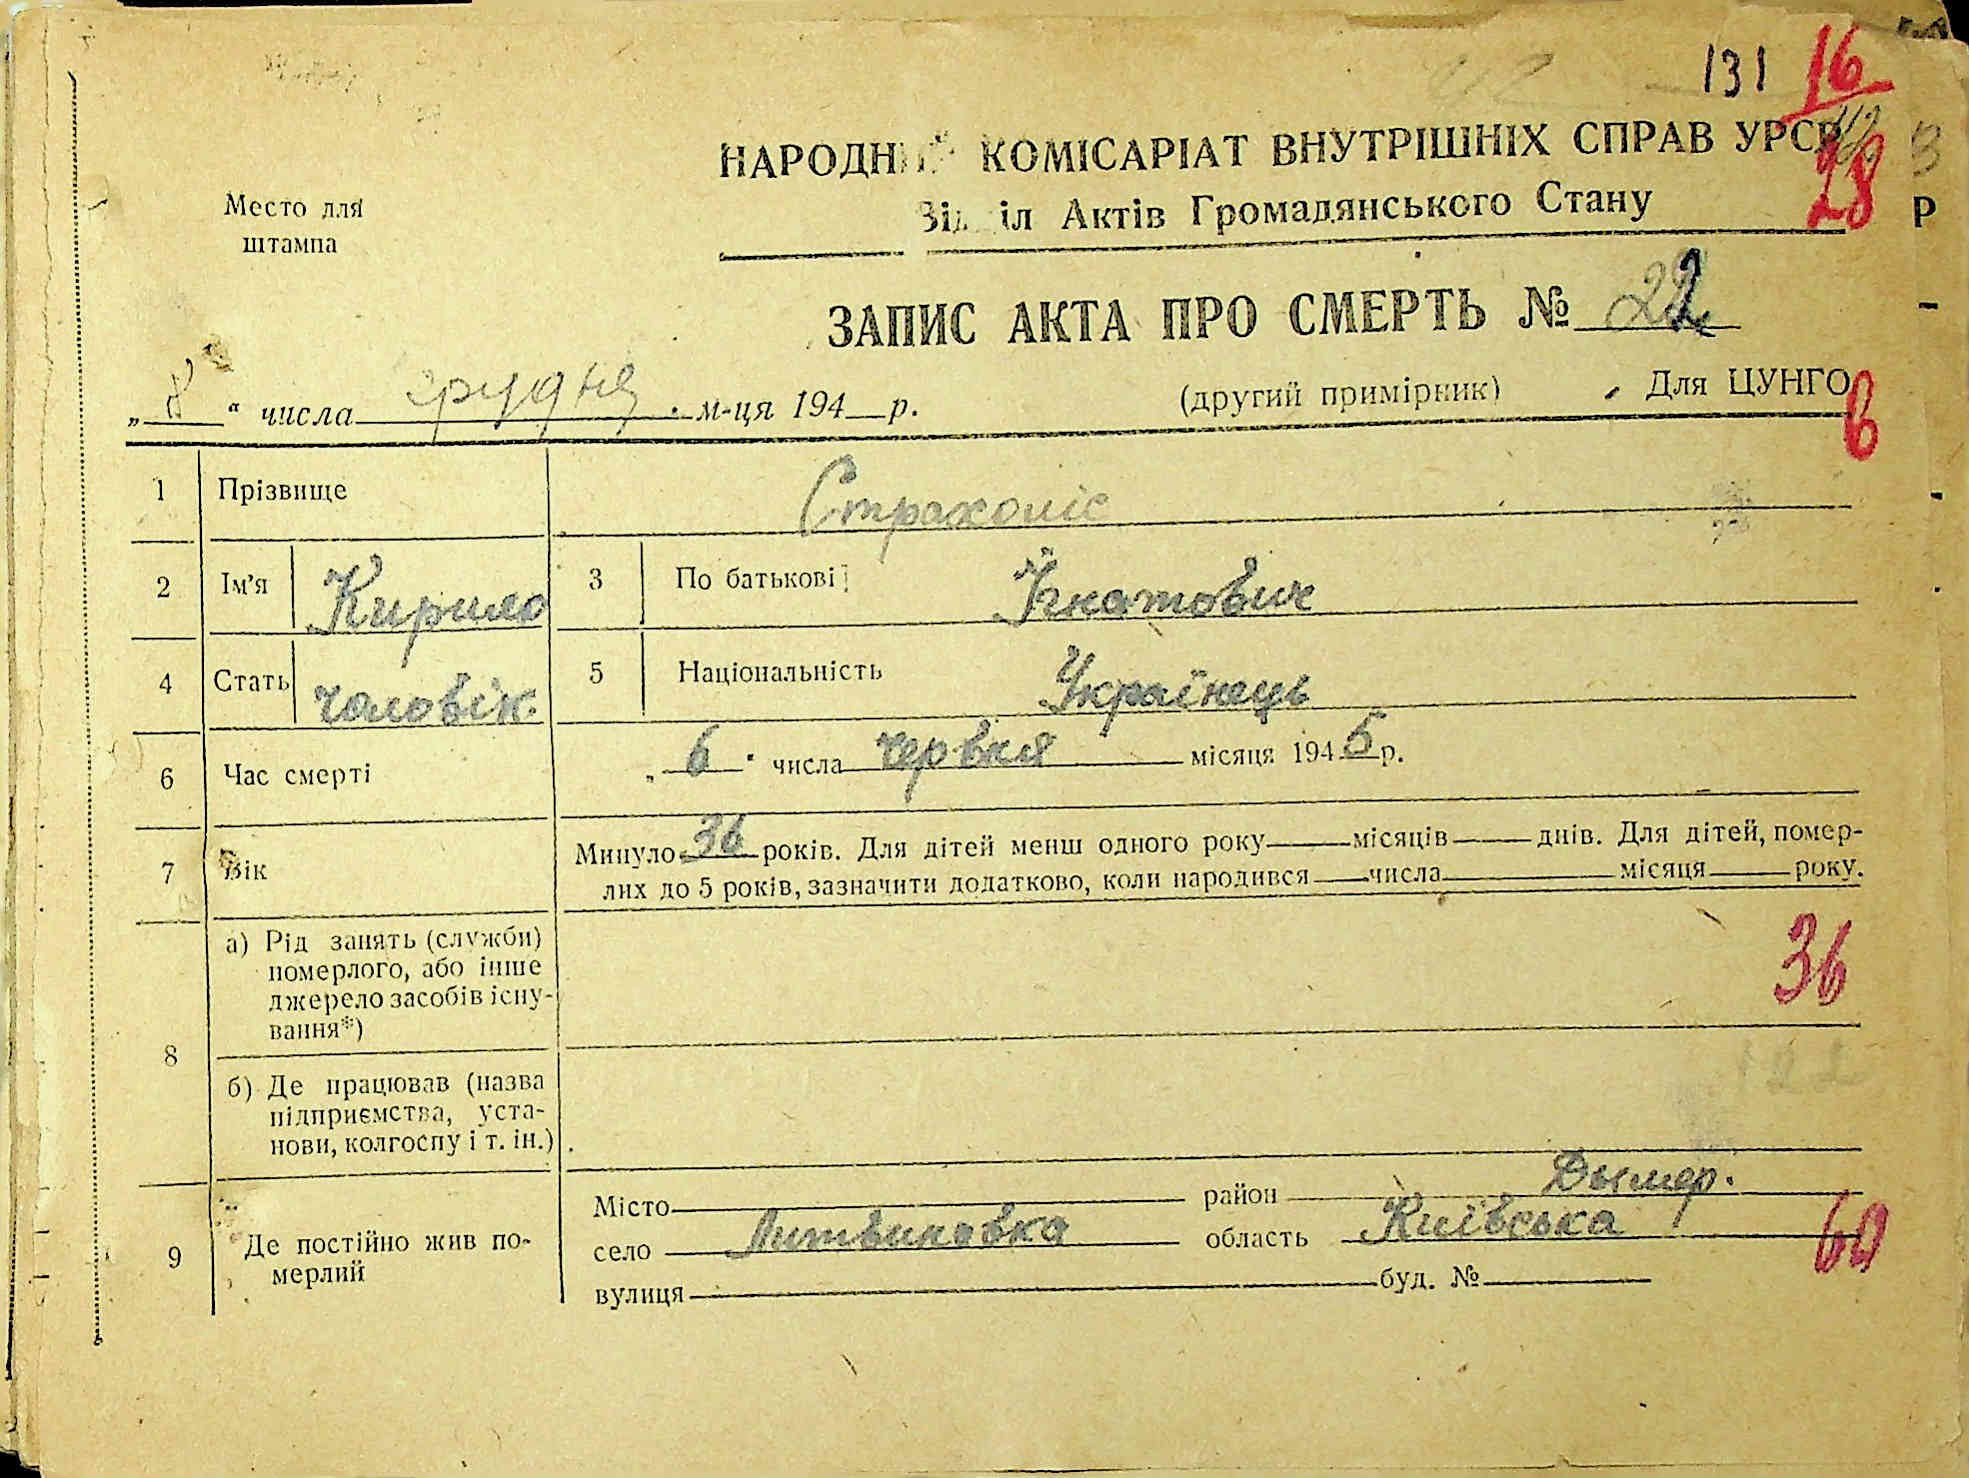 131 16
28
НАРОДНИЙ КОМІСАРІАТ ВНУТРІШНІХ СПРАВ УРСР
Відділ Актів Громадянського Стану
Место для
штампа
ЗАПИС АКТА ПРО СМЕРТЬ № 22
„ 8 “ числа грудня м-ця 194 р. (другий примірник) Для ЦУНГО
6
1 Прізвище Страхоліс
2 Ім’я Кирило 3 По батькові Ігнатович
4 Стать чоловік. 5 Національність Українець
6 Час смерті „ 6 “ числа червня місяця 1945 р.
7 Вік Минуло 36 років. Для дітей менш одного року місяців днів. Для дітей, помер-
лих до 5 років, зазначити додатково, коли народився числа місяця року.
8 а) Рід занять (служби)
померлого, або інше
джерело засобів існу-
вання*)
36
б) Де працював (назва
підприємства, уста-
нови, колгоспу і т. ін.)
9 Де постійно жив по-
мерлий
Місто район Дымер.
село Литвиновка область Київська
вулиця буд. №
60